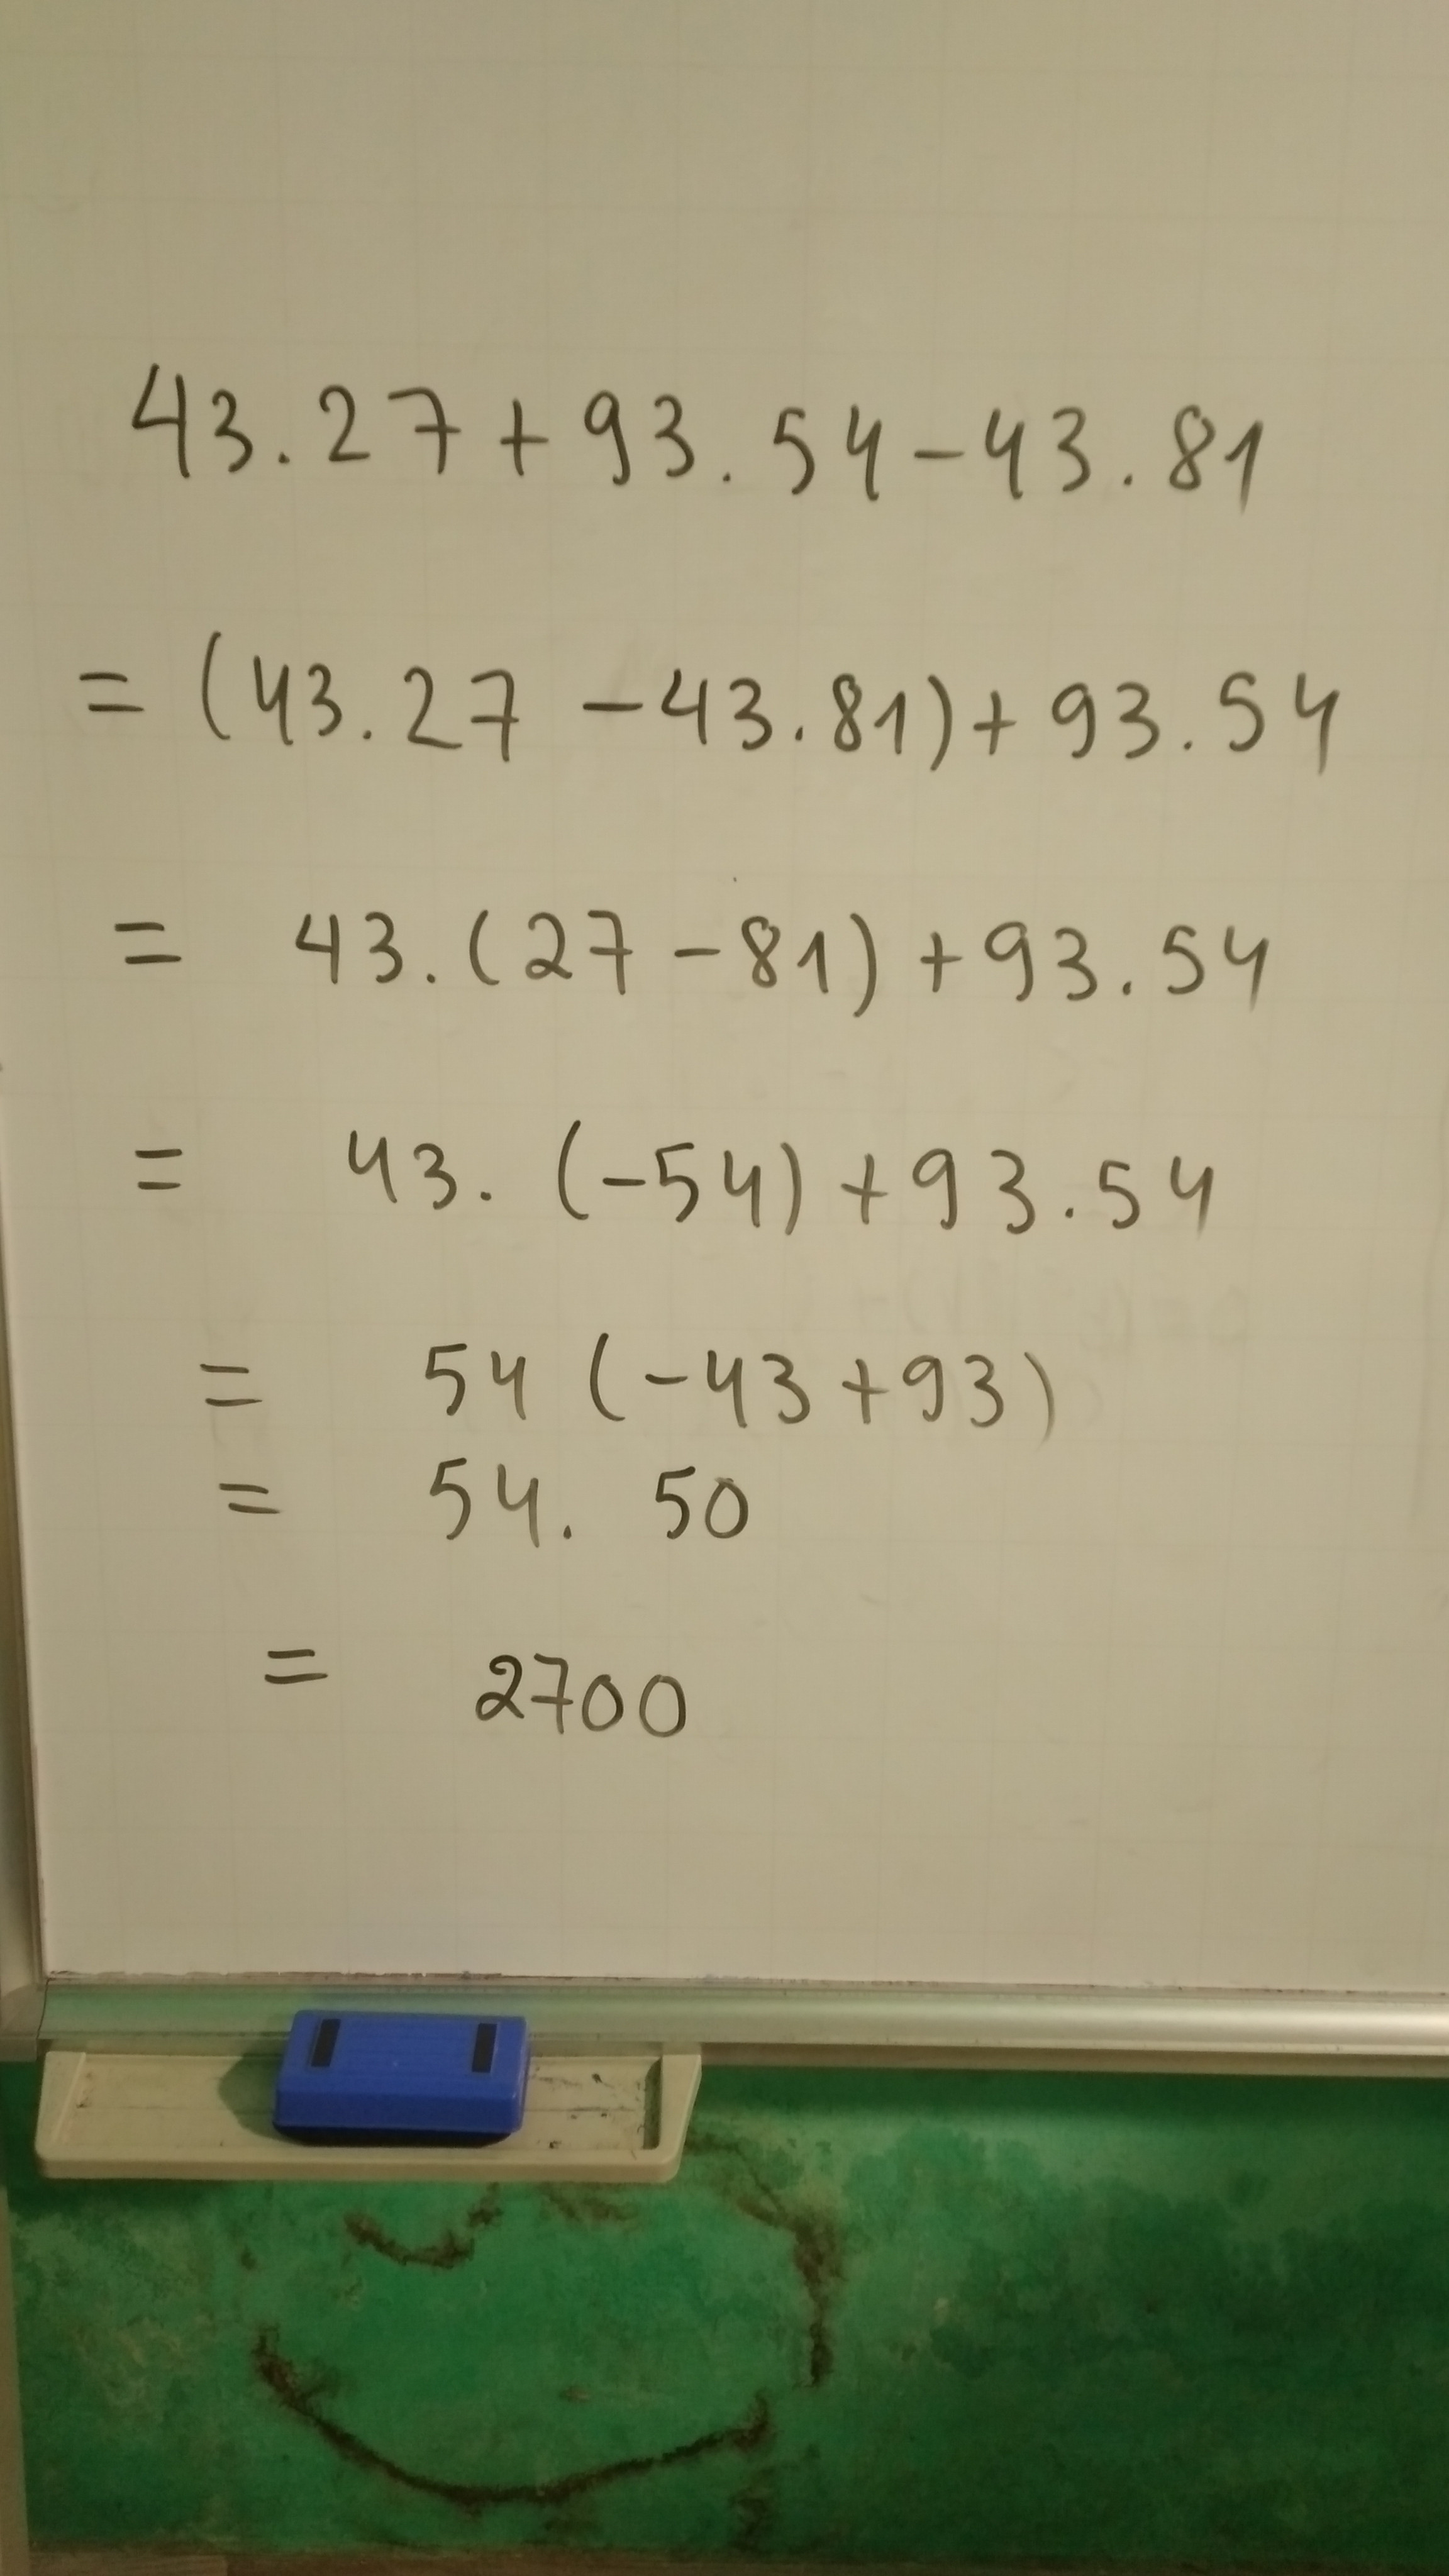 43.27+93.54-43.81
= (43.27 -43.81)+93.54
= 43.(27-81)+93.54
= 43.(-54)+93.54
= 54(-43+93)
= 54. 50
= 2700